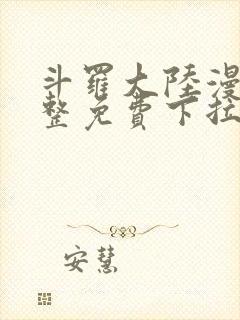 斗羅大陸漫
整免費下拉
安慧